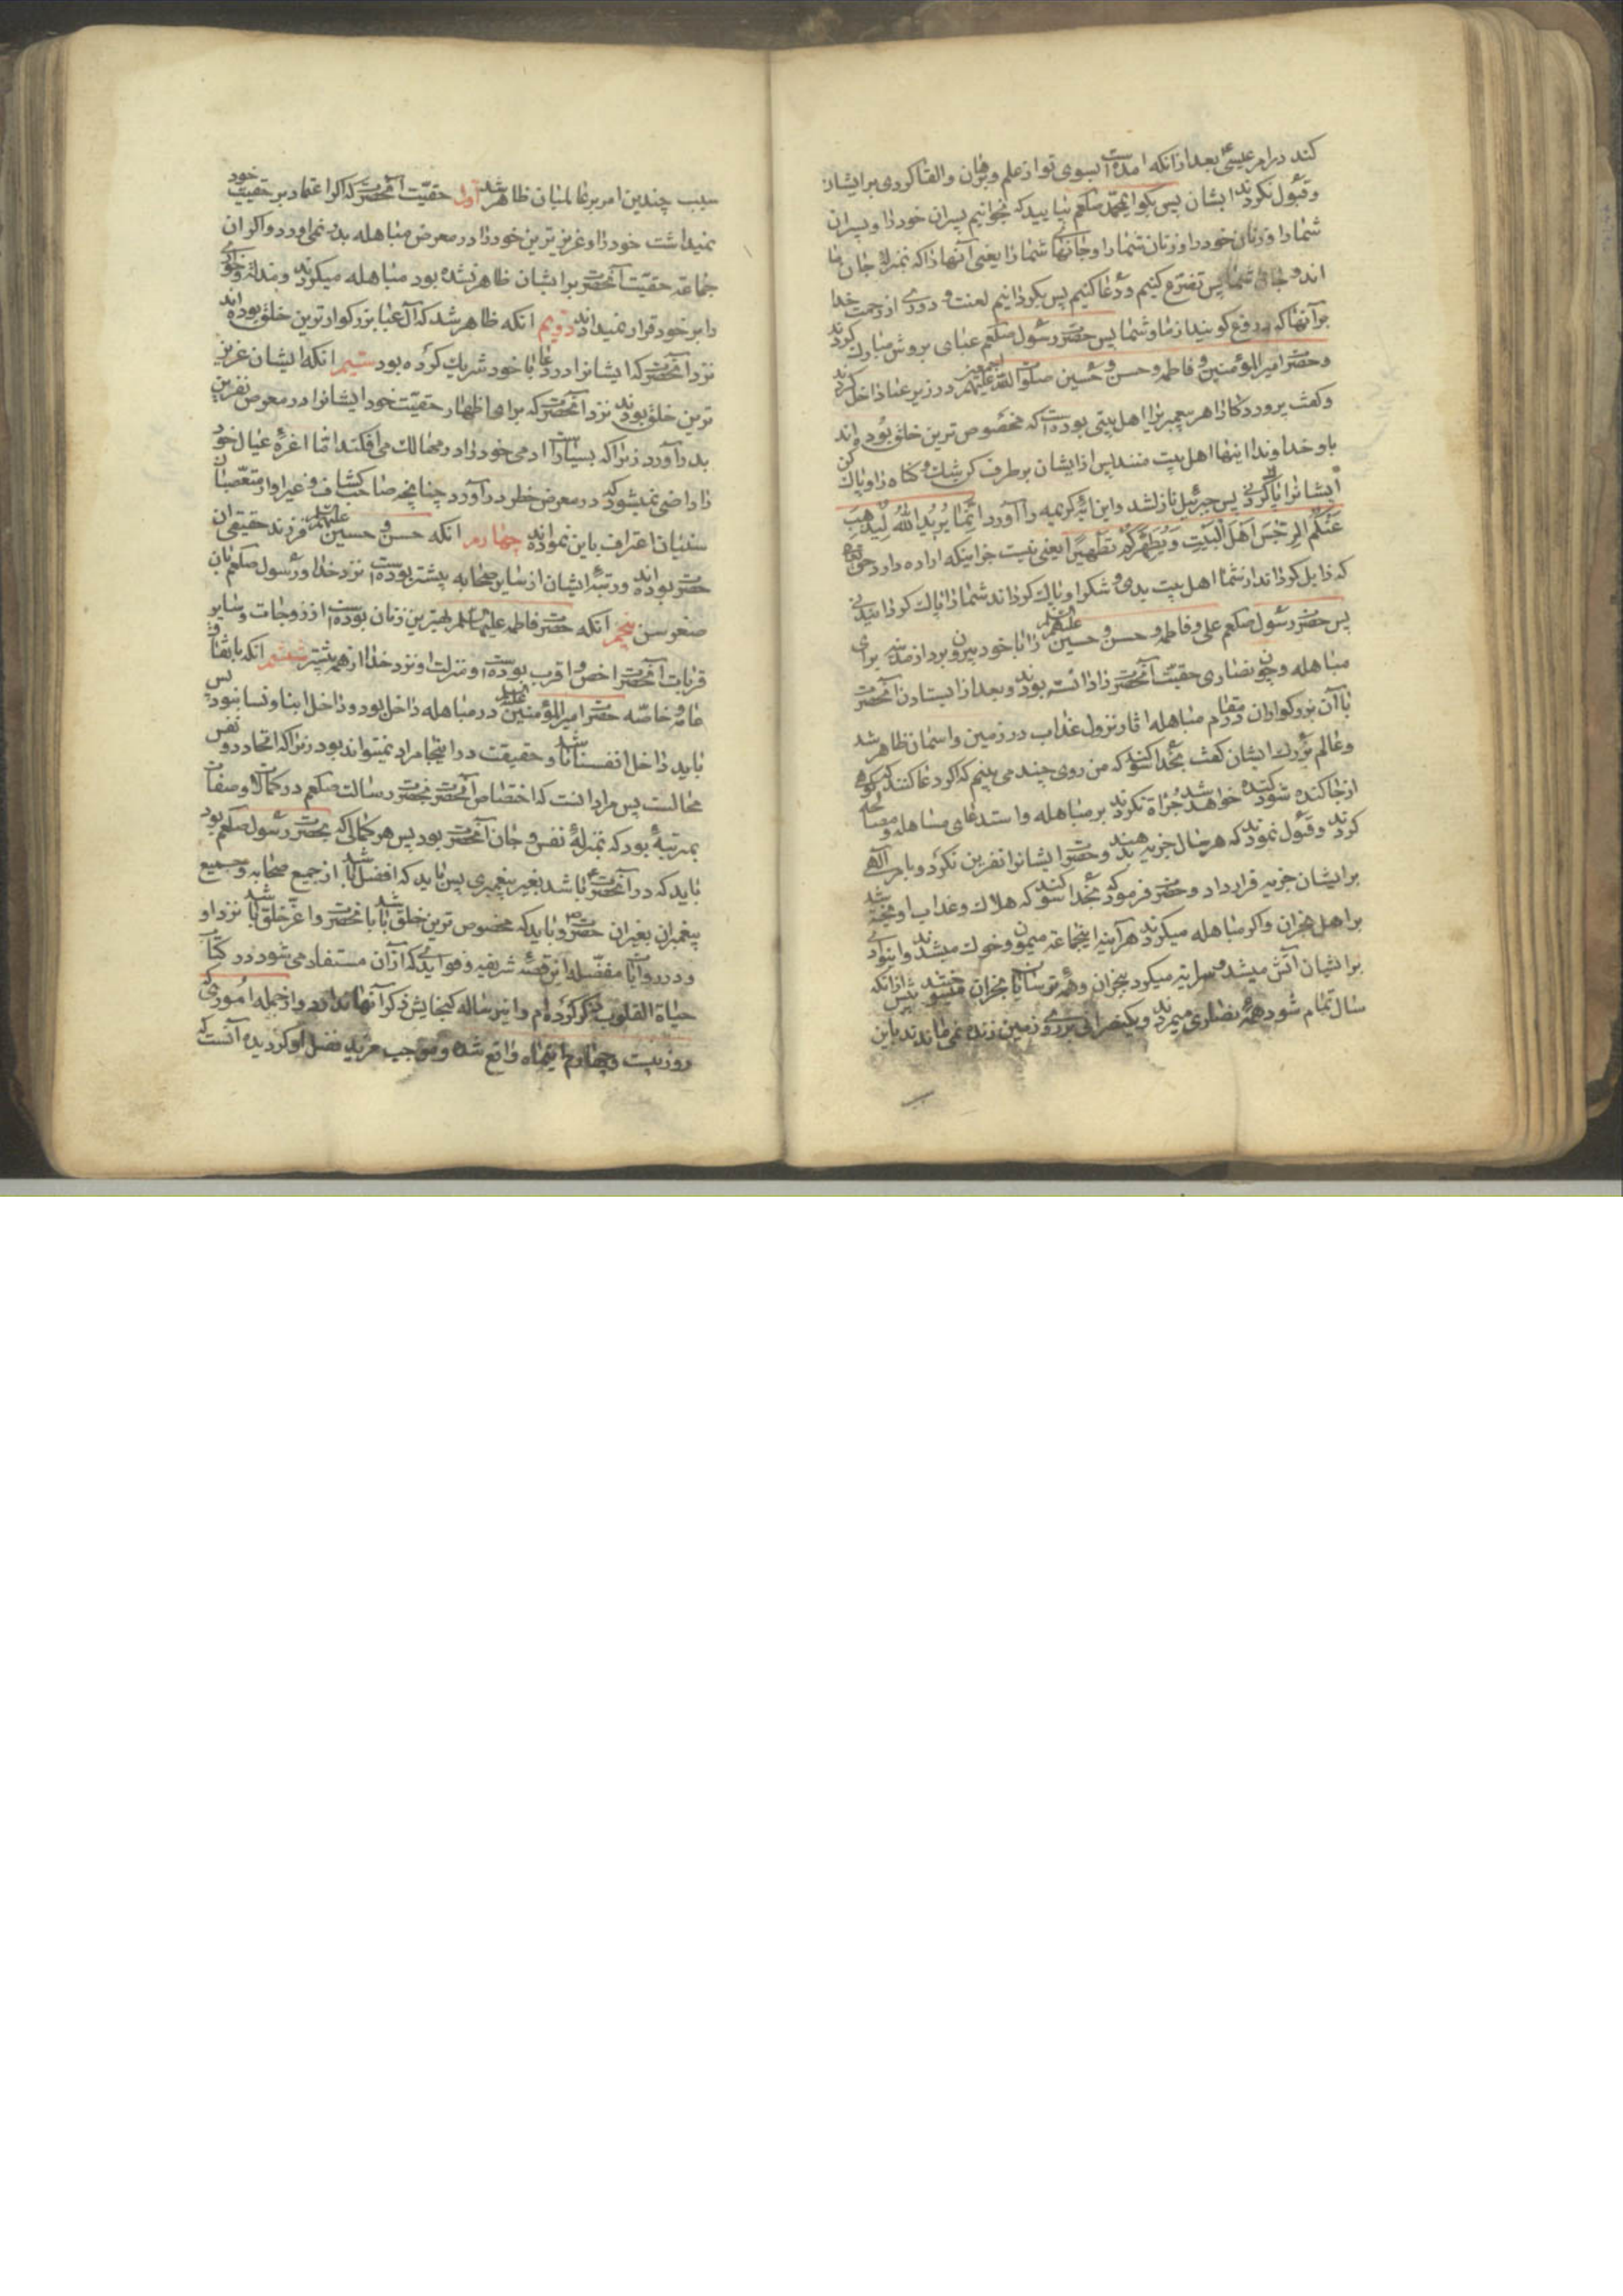 کند در امر عیسی بعد از آنکه آمده است بسوی تو از علم و برهان و القا کردی بر ایشان
و قبول نکردند ایشان پس بگو ای محمد صلعم بیایید که بخوانیم پسران خود را و پسران
شما را و زنان خود را و زنان شما را و جانهای شما را یعنی آنها را که بمنزله جان ما
اند و جان شما پس تضرع کنیم و دعا کنیم پس بگردانیم لعنت و دوری از رحمت خدا
بر آنها که دروغ گویند از ما و شما پس حضرت رسول صلعم عبای بر دوش مبارک کردند
و حضرت امیر المؤمنین و فاطمه و حسن و حسین صلوات الله علیهم اجمعین در زیر عبا داخل کردند
و گفت پروردگارا هر پیغمبر را اهل بیتی بوده است که مخصوص ترین خلق بوده اند
باو خداوندا اینها اهل بیت منند پس از ایشان برطرف کن شک و گناه را و پاک کن
ایشانرا پاک کردنی پس جبرئیل نازل شد و این آیه کریمه را آورد انما یرید الله لیذهب
عنکم الرجس اهل البیت و یطهرکم تطهیرا یعنی نیست جز اینکه اراده دارد حق تعالی
که زایل گرداند از شما اهل بیت بدی و شک را و پاک گرداند شما را پاک گردانیدنی
پس حضرت رسول صلعم علی و فاطمه و حسن و حسین علیهم السلام را با خود بیرون برد از مدینه برای
مباهله و چون نصاری حقیت آنحضرت را دانسته بودند و بعد از ایستادن آنحضرت
با آن بزرگواران در مقام مباهله آثار نزول عذاب در زمین و آسمان ظاهر شد
و عالم بزرگ ایشان گفت بخدا سوگند که من روی چند می بینم که اگر دعا کنند که کوه
از جا کنده شود کنده خواهد شد جرأة نکردند بر مباهله و استدعای مساهله و مصالحه
کردند و قبول نمودند که هر سال جزیه بدهند و حضرت ایشانرا نفرین نکرد و بامر الهی
بر ایشان جزیه قرار داد و حضرت فرمود که بخدا سوگند که هلاک و عذاب آویخته شد
بر اهل نجران و اگر مباهله میکردند هر آینه اینجماعة میمون و خوک میشدند و این وادی
بر ایشان آتش میشد و سرایت میکرد بنجران و همه ترسایان نجران میسوختند پیش از آنکه
سال تمام شود همه نصاری میمردند و یک نصرانی بر روی زمین زنده نمی ماندند باین
سبب
سبب چندین امر بر عالمیان ظاهر شد اول حقیت آنحضرت که اگر اعتماد بر حقیت خود
نمیداشت خود را و عزیزترین خود را در معرض مباهله بدر نمی آورد و اگر آن
جماعة حقیت آنحضرت بر ایشان ظاهر نشده بود مباهله میکردند و مذلت و خواری
را بر خود قرار نمیدادند دویم آنکه ظاهر شد که آل عبا بزرگوارترین خلق بوده اند
نزد آنحضرت که ایشانرا در دعا با خود شریک کرده بود سیم آنکه ایشان عزیز
ترین خلق بودند نزد آنحضرت که برای اظهار حقیت خود ایشانرا در معرض نفرین
بدر آورد زیرا که بسیار است آدمی خود را در مهالک می افکند اما اعزه عیال خود
را راضی نمیشود که در معرض خطر در آورد چنانچه صاحب کشاف و غیر او از متعصبان
سنیان اعتراف باین نموده اند چهارم آنکه حسن و حسین علیهم السلام فرزند حقیقی آن
حضرت بوده اند و رتبه ایشان از سایر صحابه بیشتر بوده است نزد خدا و رسول صلعم بآن
صغر سن پنجم آنکه حضرت فاطمه علیها السلم بهترین زنان بوده است از زوجات و سایر
قربات آنحضرت اخص و اقرب بوده است و منزلت او نزد خدا از همه بیشتر ششم آنکه باتفاق
عامه و خاصه حضرت امیر المؤمنین علیه السلام در مباهله داخل بود و داخل ابنا و نسا نبود پس
باید داخل انفسنا باشد و حقیقت در اینجا مراد نمیتواند بود زیرا که اتحاد دو نفس
محالست پس مراد آنست که اختصاص آنحضرت بحضرت رسالت صلعم در کمالات و صفات
بمرتبه بود که بمنزله نفس و جان آنحضرت بود پس هر کمالی که بحضرت رسول صلعم بود
باید که در آنحضرت باشد بغیر پیغمبری پس باید که افضل باشد از جمیع صحابه و جمیع
پیغمبران بغیر آن حضرت و باید که مخصوص ترین خلق باشد بآنحضرت و اعز خلق باشد نزد او
و در روایات مفصله این قصه شریفه و فوایدی که از آن مستفاد می شود در کتاب
حیاة القلوب ذکر کرده ام و این رساله گنجایش ذکر آنها ندارد و از جمله اموری که
روز بیست و چهارم اینماه واقع شده و موجب مزید فضل او گردیده آنست که